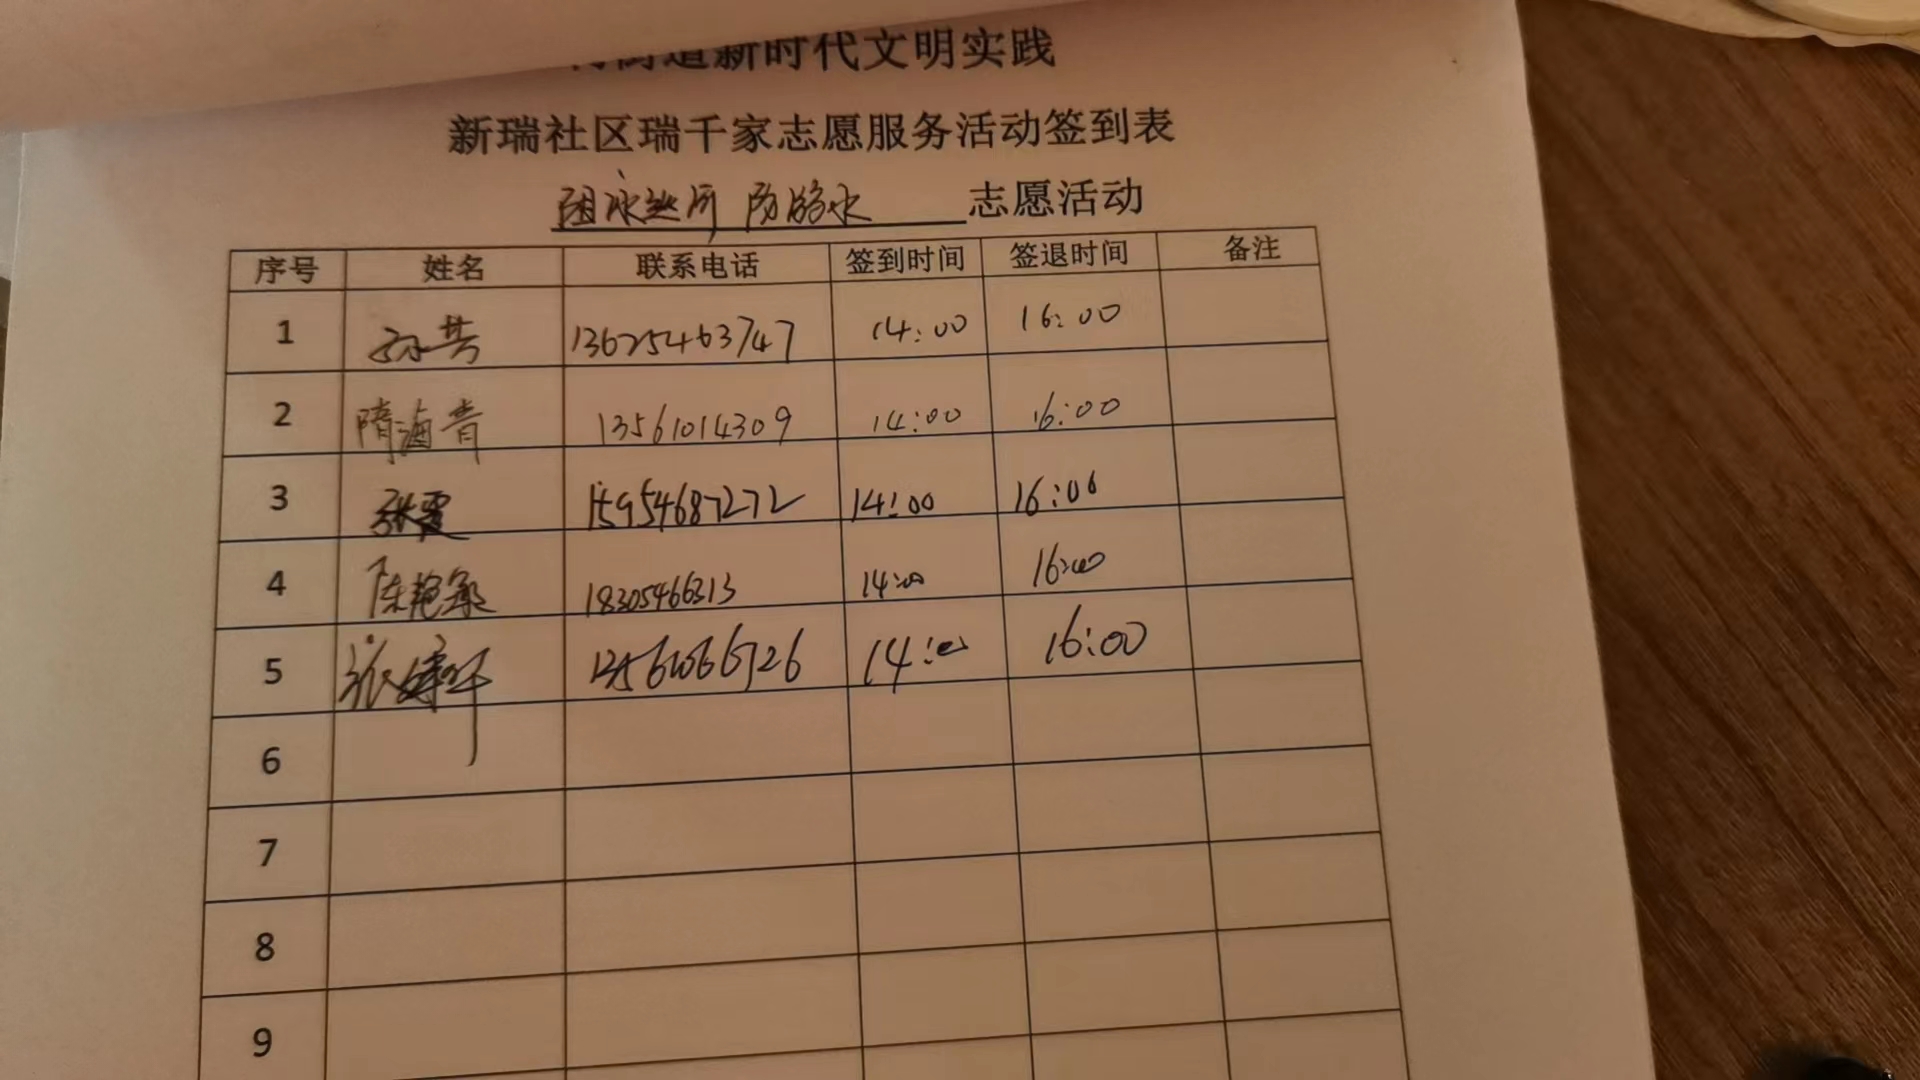 街道新时代文明实践
新瑞社区瑞千家志愿服务活动签到表
防溺水 志愿活动
序号 姓名 联系电话 签到时间 签退时间 备注
1 13675463747 14:00 16:00
2 隋海青 13561014309 14:00 16:00
3 张霞 15954687272 14:00 16:00
4 陈艳 18305466313 14:00 16:00
5 张 14:00 16:00
6
7
8
9